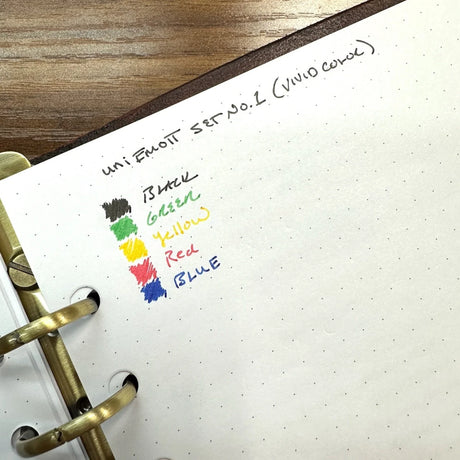 uni EMOTT SET NO.1 (VIVID COLOR)
BLACK
GREEN
Yellow
Red
BLUE